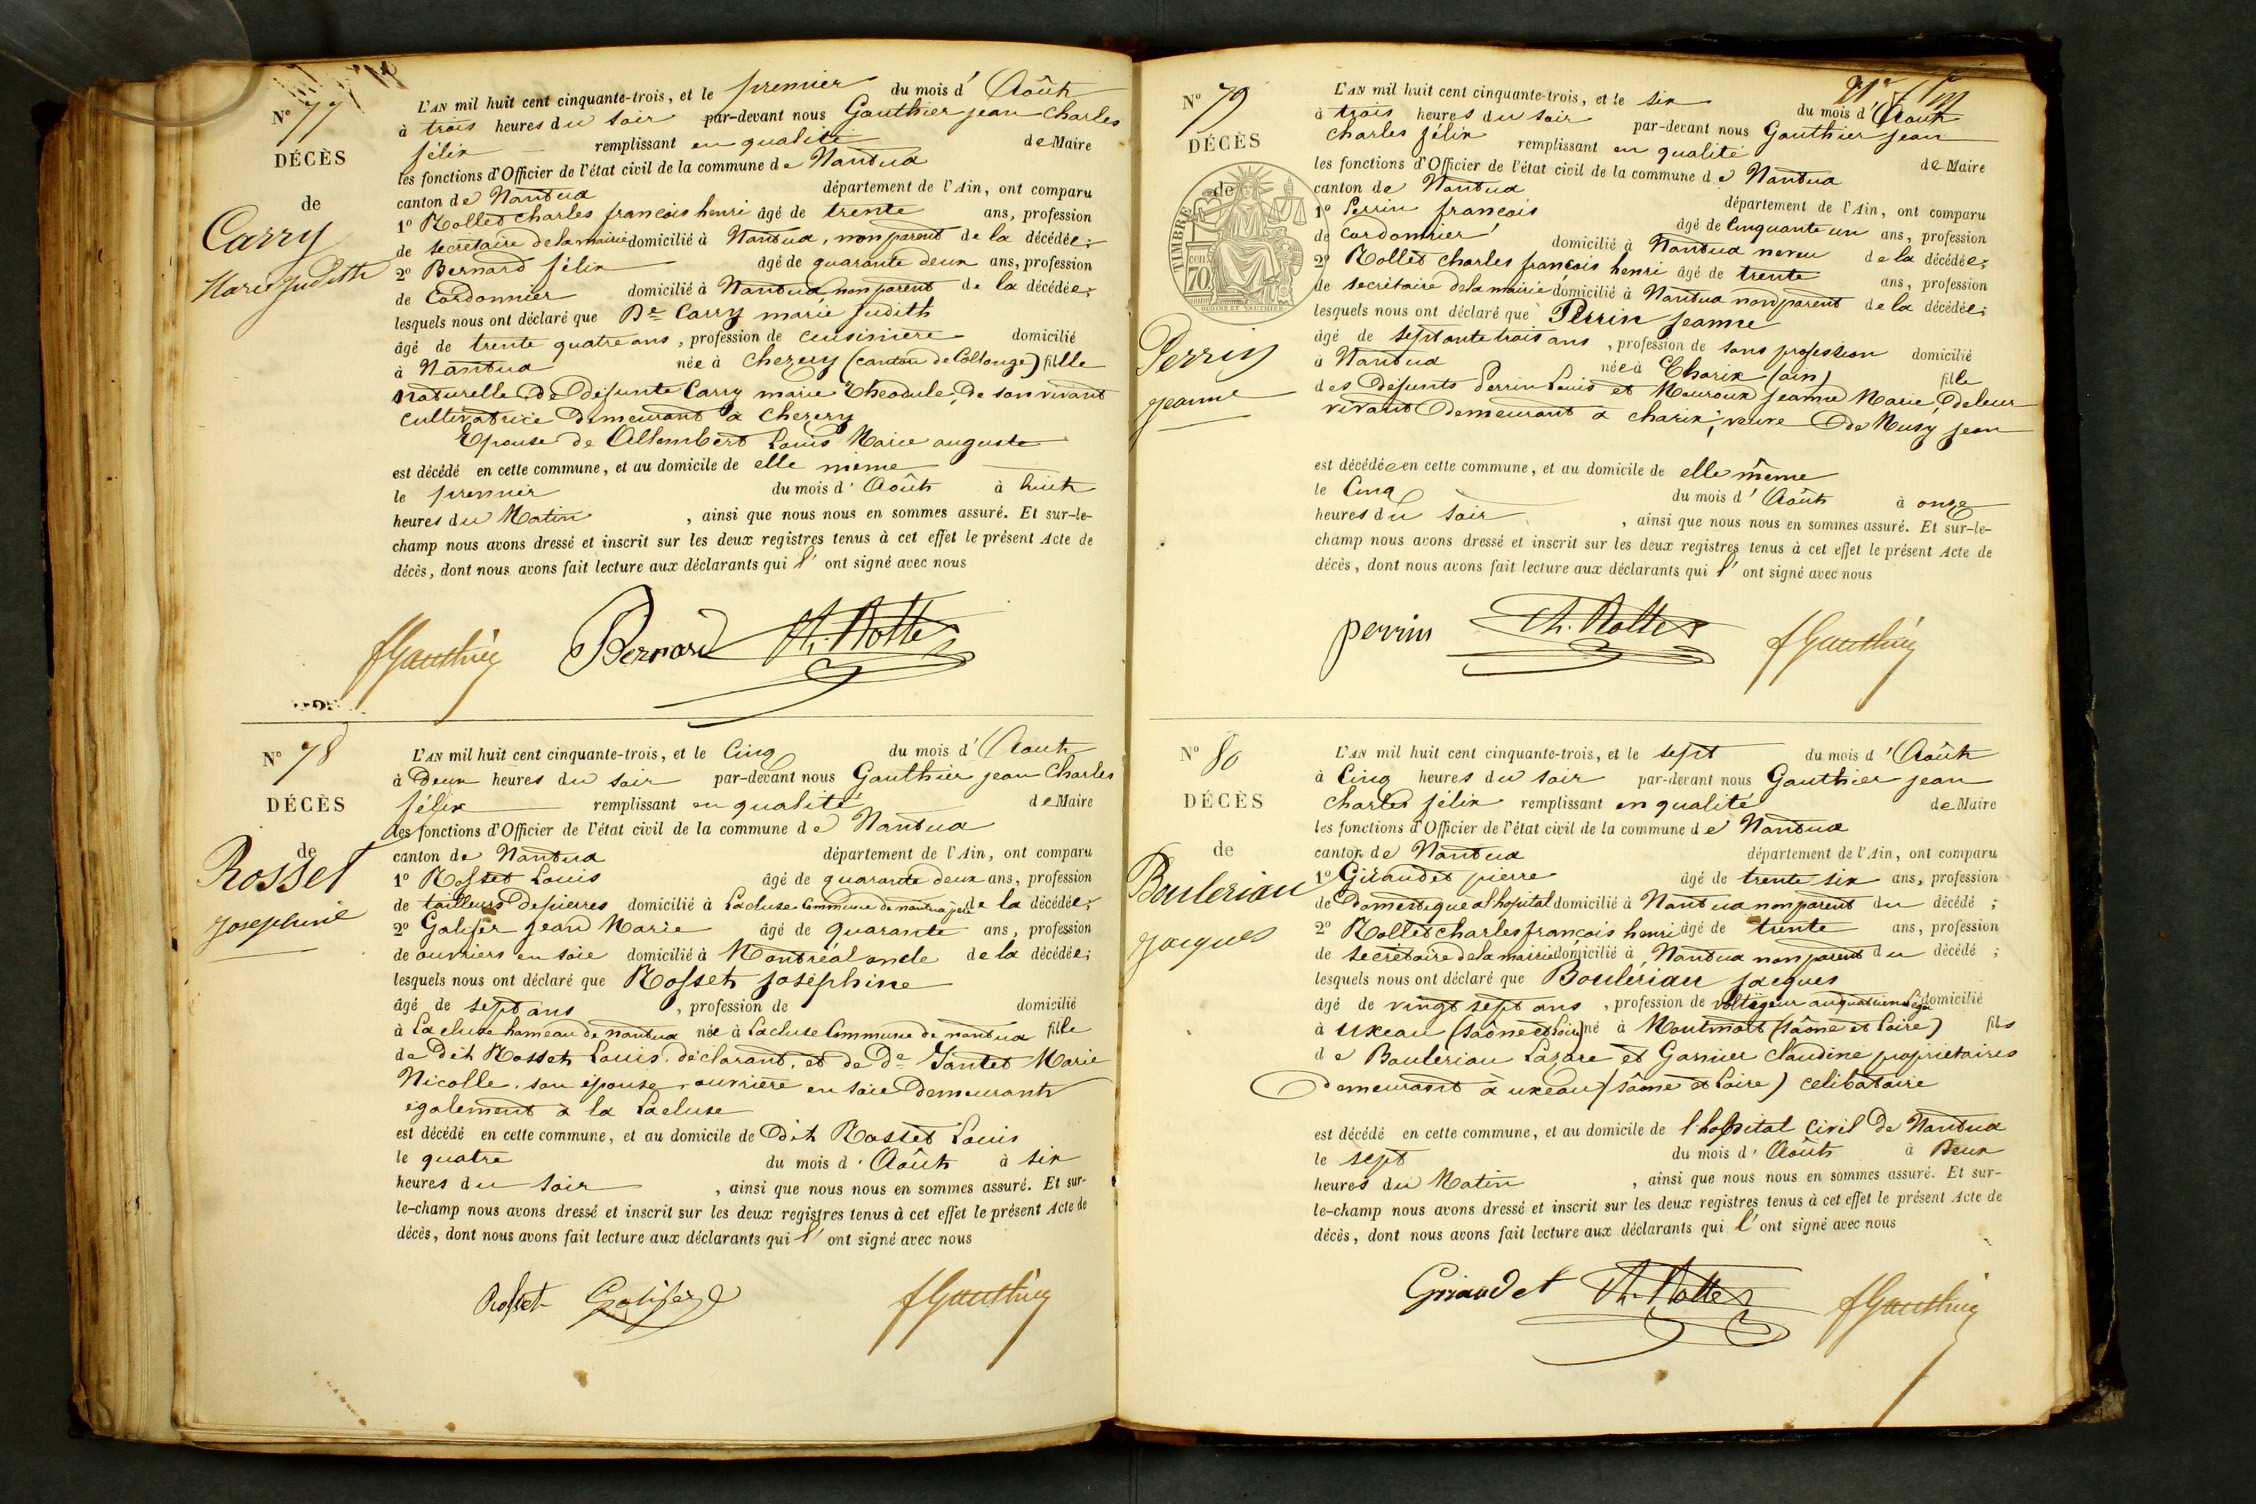 N° 77
DÉCÈS
de
Carry
Marie Judith
L'AN mil huit cent cinquante-trois, et le premier du mois d' Août
à trois heures du soir par-devant nous Gauthier jean Charles
félix remplissant en qualité de Maire
les fonctions d'Officier de l'état civil de la commune de Nantua
canton de Nantua département de l'Ain, ont comparu
1° Rollet charles francois henri âgé de trente ans, profession
de secretaire de la mairie domicilié à Nantua, non parent de la décédée;
2° Bernard félix âgé de quarante deux ans, profession
de Cordonnier domicilié à Nantua non parent de la décédée;
lesquels nous ont déclaré que De Carry marie judith
âgé de trente quatre ans, profession de cuisinière domicilié
à Nantua née à Chezery (canton de Collonge) fille
naturelle de défunte Carry marie Théodule, de son vivant
cultivatrice demeurant à Chezery
Epouse de Allembert Louis Marie auguste
est décédé en cette commune, et au domicile de elle même
le premier du mois d' Août à huit
heures du Matin, ainsi que nous nous en sommes assuré. Et sur-le-
champ nous avons dressé et inscrit sur les deux registres tenus à cet effet le présent Acte de
décès, dont nous avons fait lecture aux déclarants qui l' ont signé avec nous
fGauthier Bernard Ch. Rollet
N° 78
DÉCÈS
de
Rosset
Josephine
L'AN mil huit cent cinquante-trois, et le Cinq du mois d' Août
à Deux heures du soir par-devant nous Gauthier jean Charles
félix remplissant en qualité de Maire
les fonctions d'Officier de l'état civil de la commune de Nantua
canton de Nantua département de l'Ain, ont comparu
1° Rosset Louis âgé de quarante deux ans, profession
de tailleurs de pierres domicilié à Lacluse Commune de nantua père de la décédée;
2° Galifer jean Marie âgé de quarante ans, profession
de ouvriers en soie domicilié à Montréal oncle de la décédée;
lesquels nous ont déclaré que Rosset joséphine
âgé de sept ans, profession de domicilié
à Lacluse hameau de nantua née à Lacluse Commune de nantua fille
de Dit Rosset Louis déclarant, et de De Jantet Marie
Nicolle, son épouse, ouvrière en soie Demeurant
également à la Lacluse
est décédé en cette commune, et au domicile de Dit Rosset Louis
le quatre du mois d' Août à six
heures du soir, ainsi que nous nous en sommes assuré. Et sur-
le-champ nous avons dressé et inscrit sur les deux registres tenus à cet effet le présent Acte de
décès, dont nous avons fait lecture aux déclarants qui l' ont signé avec nous
Rosset Galifer fGauthier
N° 79
DÉCÈS
de
TIMBRE
70
Perrin
jeanne
L'AN mil huit cent cinquante-trois, et le six du mois d' Août
à trois heures du soir par-devant nous Gauthier jean
charles félix remplissant en qualité de Maire
les fonctions d'Officier de l'état civil de la commune de Nantua
canton de Nantua département de l'Ain, ont comparu
1° Perrin francois âgé de Cinquante un ans, profession
de Cordonnier domicilié à Nantua neveu de la décédée;
2° Rollet charles francois henri âgé de trente ans, profession
de secrétaire de la mairie domicilié à Nantua non parent de la décédée;
lesquels nous ont déclaré que Perrin jeanne
âgé de septante trois ans, profession de sans profession domicilié
à Nantua née à Charix (ain) fille
des défunts Perrin Louis et Mouroux jeanne Marie, de leur
vivant demeurant à charix; veuve De Musy jean
est décédée en cette commune, et au domicile de elle même
le Cinq du mois d' Août à onze
heures du soir, ainsi que nous nous en sommes assuré. Et sur-le-
champ nous avons dressé et inscrit sur les deux registres tenus à cet effet le présent Acte de
décès, dont nous avons fait lecture aux déclarants qui l' ont signé avec nous
perrin Ch. Rollet fGauthier
N° 80
DÉCÈS
de
Boulerian
jacques
L'AN mil huit cent cinquante-trois, et le sept du mois d' Août
à Cinq heures du soir par-devant nous Gauthier jean
charles félix remplissant en qualité de Maire
les fonctions d'Officier de l'état civil de la commune de Nantua
canton de Nantua département de l'Ain, ont comparu
1° Giraudet pierre âgé de trente six ans, profession
de Domestique a l'hopital domicilié à Nantua non parent du décédé;
2° Rollet charles françois henri âgé de trente ans, profession
de secrétaire de la mairie domicilié à Nantua non parent du décédé;
lesquels nous ont déclaré que Boulerian jacques
âgé de vingt sept ans, profession de voltigeur au quatrième Léger domicilié
à Uxeau (saône et Loire) né à Montmort (saône et Loire) fils
de Boulerian Lazare et Garnier claudine propriétaires
demeurant à uxeau (saône et Loire) célibataire
est décédé en cette commune, et au domicile de l'hopital Civil De Nantua
le sept du mois d' Août à Deux
heures du Matin, ainsi que nous nous en sommes assuré. Et sur-
le-champ nous avons dressé et inscrit sur les deux registres tenus à cet effet le présent Acte de
décès, dont nous avons fait lecture aux déclarants qui l' ont signé avec nous
Giraudet Ch. Rollet fGauthier